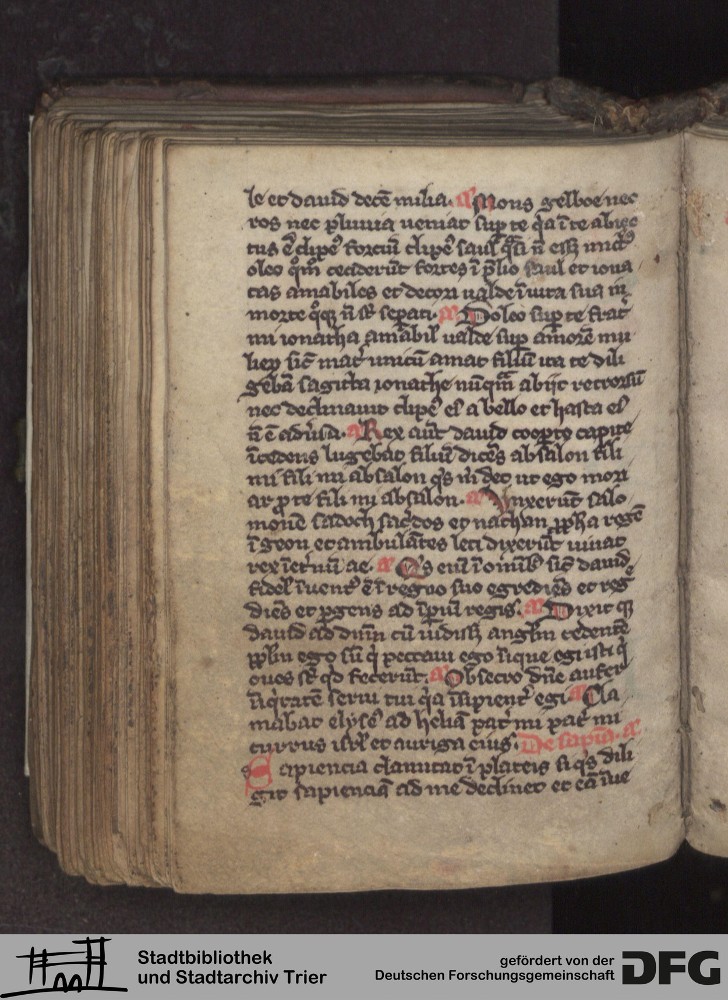 le et dauid decē milia. a Mons gelboe nec
ros nec pluuia ueniat sup te q̇a ī te abiec
tus ē clipeꝰ fortiū clipeꝰ saul q̄si n̄ eēt unctꝰ
oleo q̊m̄ ceciderūt fortes ī p̄lio saul et iona
tas amabiles et decori ualde ī uita sua in
morte q̊qꝫ n̄ s̄t sepati. a Doleo sup te frat̄
mi ionatha amabil̄ ualde sup amorē mu
lieꝝ sic̄ mat̄ unicū amat filiū ita te dili
gebā sagitta ionathe nūqm̄ abijt retrorsū
nec declinauit clipeꝰ eiꝰ a bello et hasta eiꝰ
n̄ ē aduersa. a Rex aūt dauid cooꝑto capite
īcedens lugebat filiū dicēs absalon fili
mi fili mi absalon q̇s m̄ det ut ego mori
ar ꝓ te fili mi absalon. a Vnxerūt salo
monē sadoch sac̄dos et nathan ꝓph̄a regē
ī geon et ambulātes leti dixerūt uiuat
rex ī et̄nū ae. a Q̇s eni ī omībꝰ sic̄ dauid
fidel̄ īuentꝰ ē ī regno suo egrediēs et reḡ
diēs et ꝑgens ad īperiū regis. a Dixit qꝫ
dauid ad dn̄m cū uidissꝫ anglm̄ cedentē
ppl̄m ego sū q̇ peccaui ego īique egi isti q̇
oues s̄t q̇d fecerūt. a Obsecro dn̄e aufer
īiq̇tatē serui tui q̇a īsipient̄ egi. a Cla
mabat elyseꝰ ad heliā pat̄ mi pat̄ mi
currus isrl̄ et auriga eius. De sapīa. a
Sapiencia clamitat ī plateis si q̇s dili
git sapienciā ad me declinet et eā īue
Stadtbibliothek
und Stadtarchiv Trier
gefördert von der
Deutschen Forschungsgemeinschaft
DFG